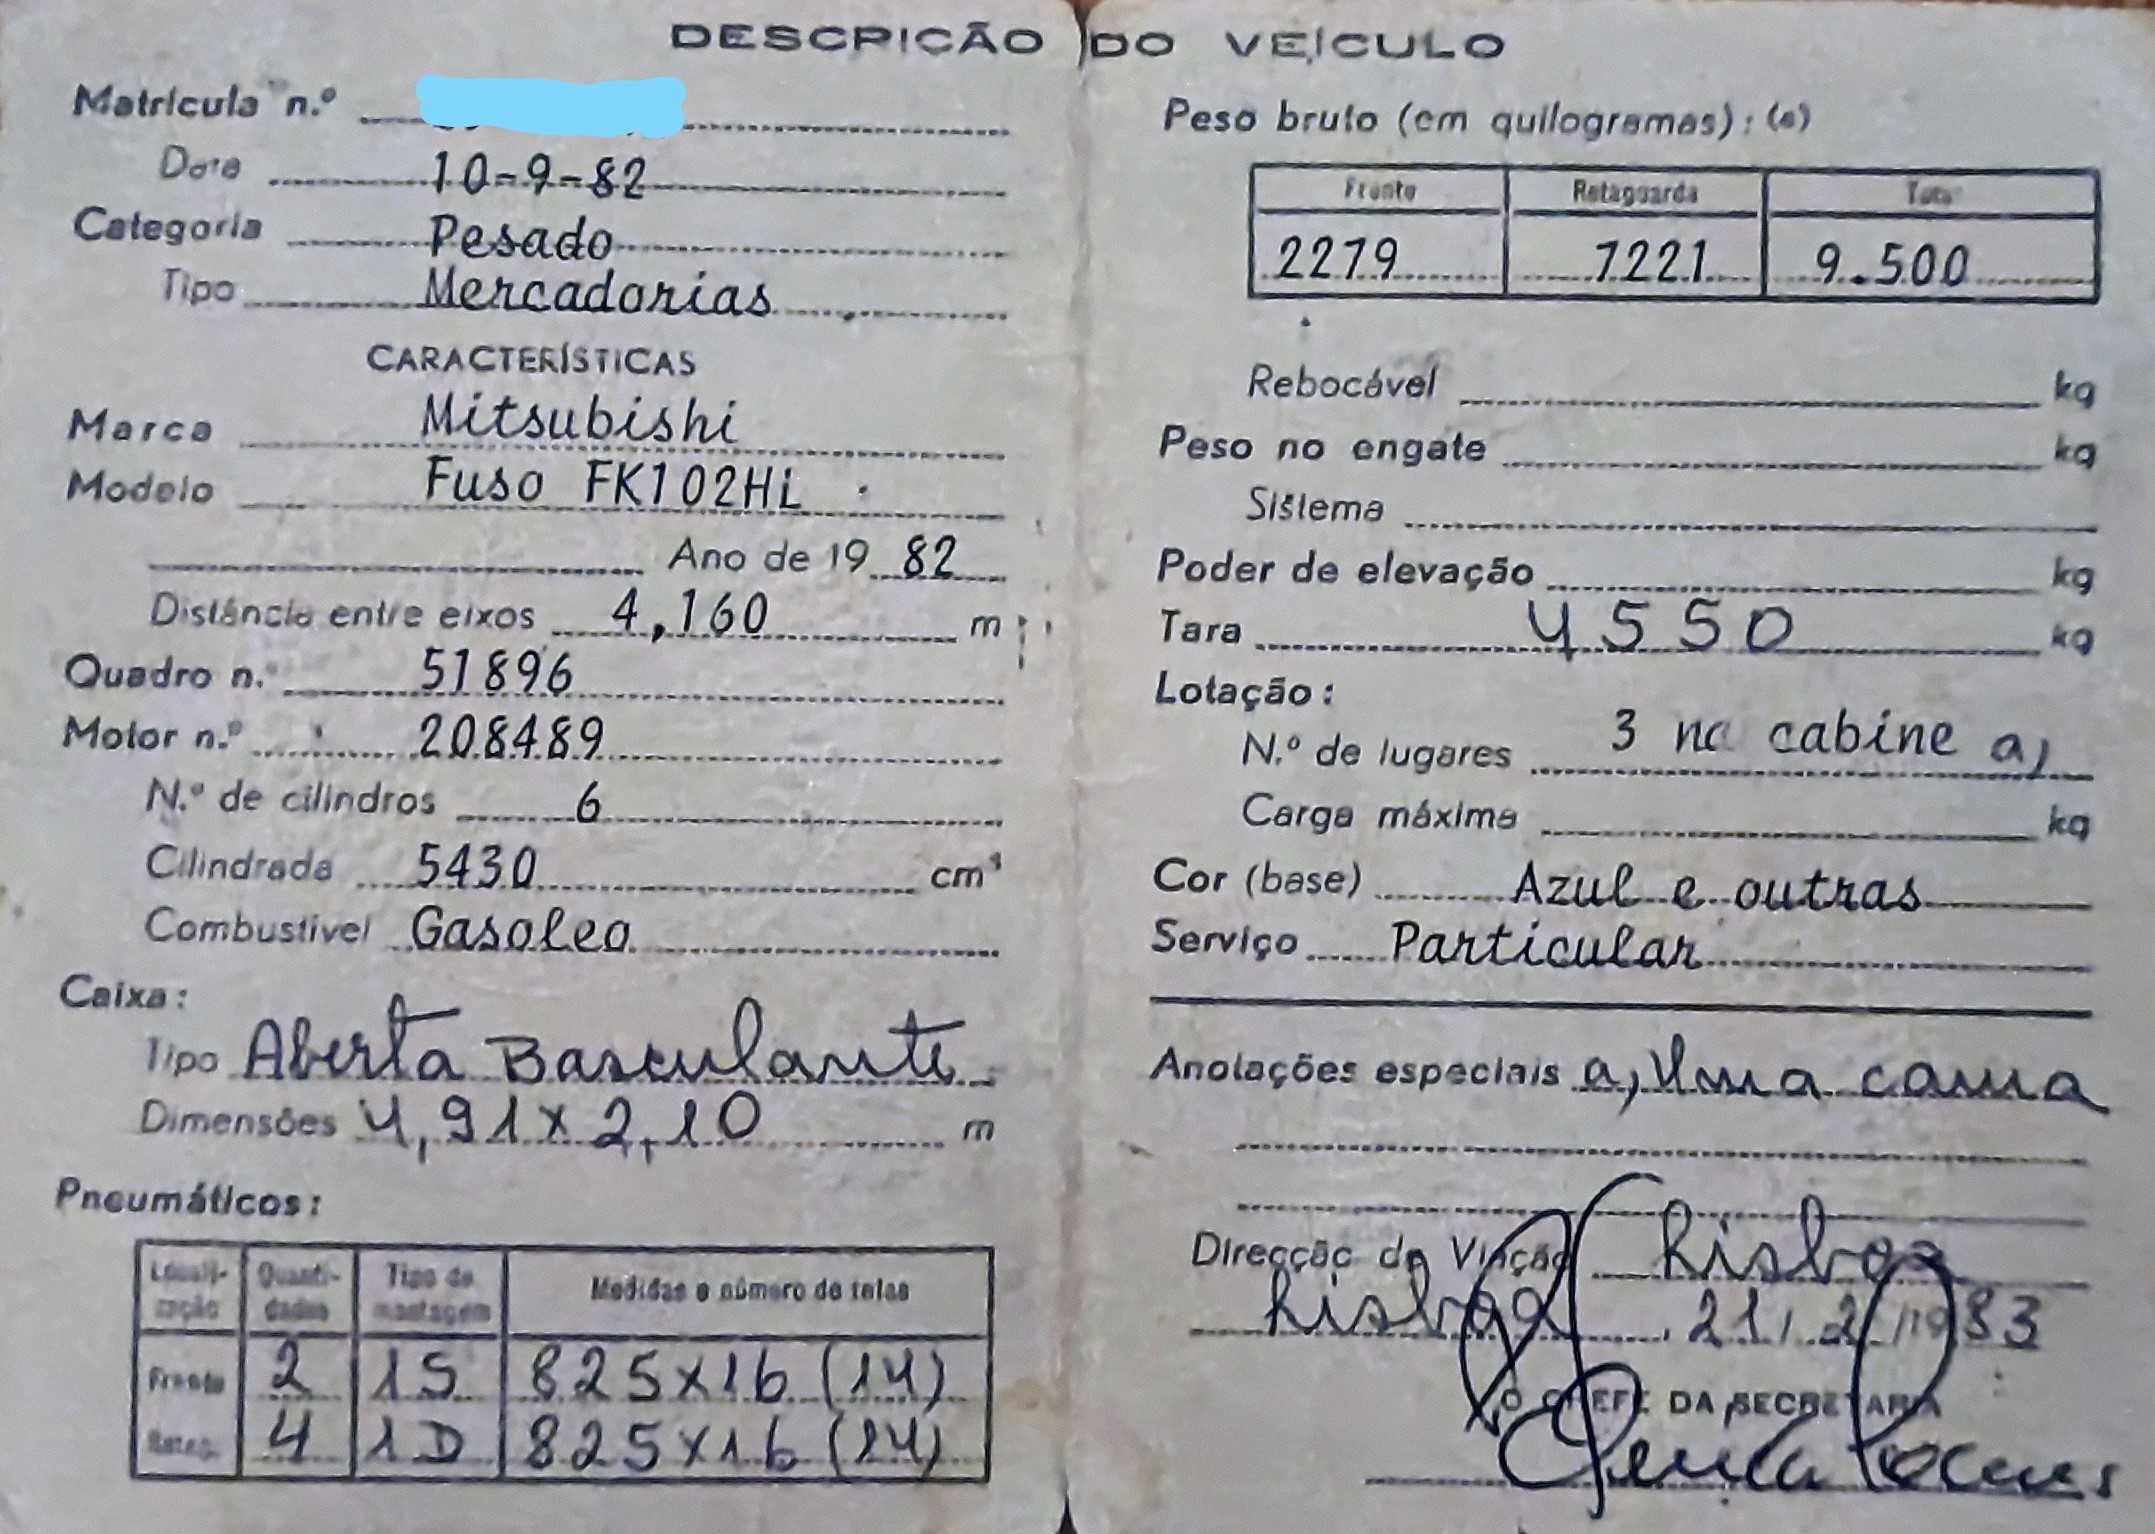 DESCRIÇÃO DO VEÍCULO
Matrícula n.º
Data 10-9-82
Categoria Pesado
Tipo Mercadorias
CARACTERÍSTICAS
Marca Mitsubishi
Modelo Fuso FK102HL
Ano de 19 82
Distância entre eixos 4,160 m
Quadro n.º 51896
Motor n.º 208489
N.º de cilindros 6
Cilindrada 5430 cm³
Combustível Gasoleo
Caixa:
Tipo Aberta Basculante
Dimensões 4,91 x 2,10 m
Pneumáticos:
Locali-zação Quanti-dades Tipo de montagem Medidas e número de telas
Frente 2 1S 825x16 (14)
Retag. 4 1D 825x16 (14)
Peso bruto (em quilogramas): (a)
Frente Retaguarda Total
2279 7221 9.500
Rebocável kg
Peso no engate kg
Sistema
Poder de elevação kg
Tara 4550 kg
Lotação:
N.º de lugares 3 na cabine a)
Carga máxima kg
Cor (base) Azul e outras
Serviço Particular
Anotações especiais a) Uma cama
Direcção de Viação Lisboa
Lisboa, 21/2/1983
O CHEFE DA SECRETARIA